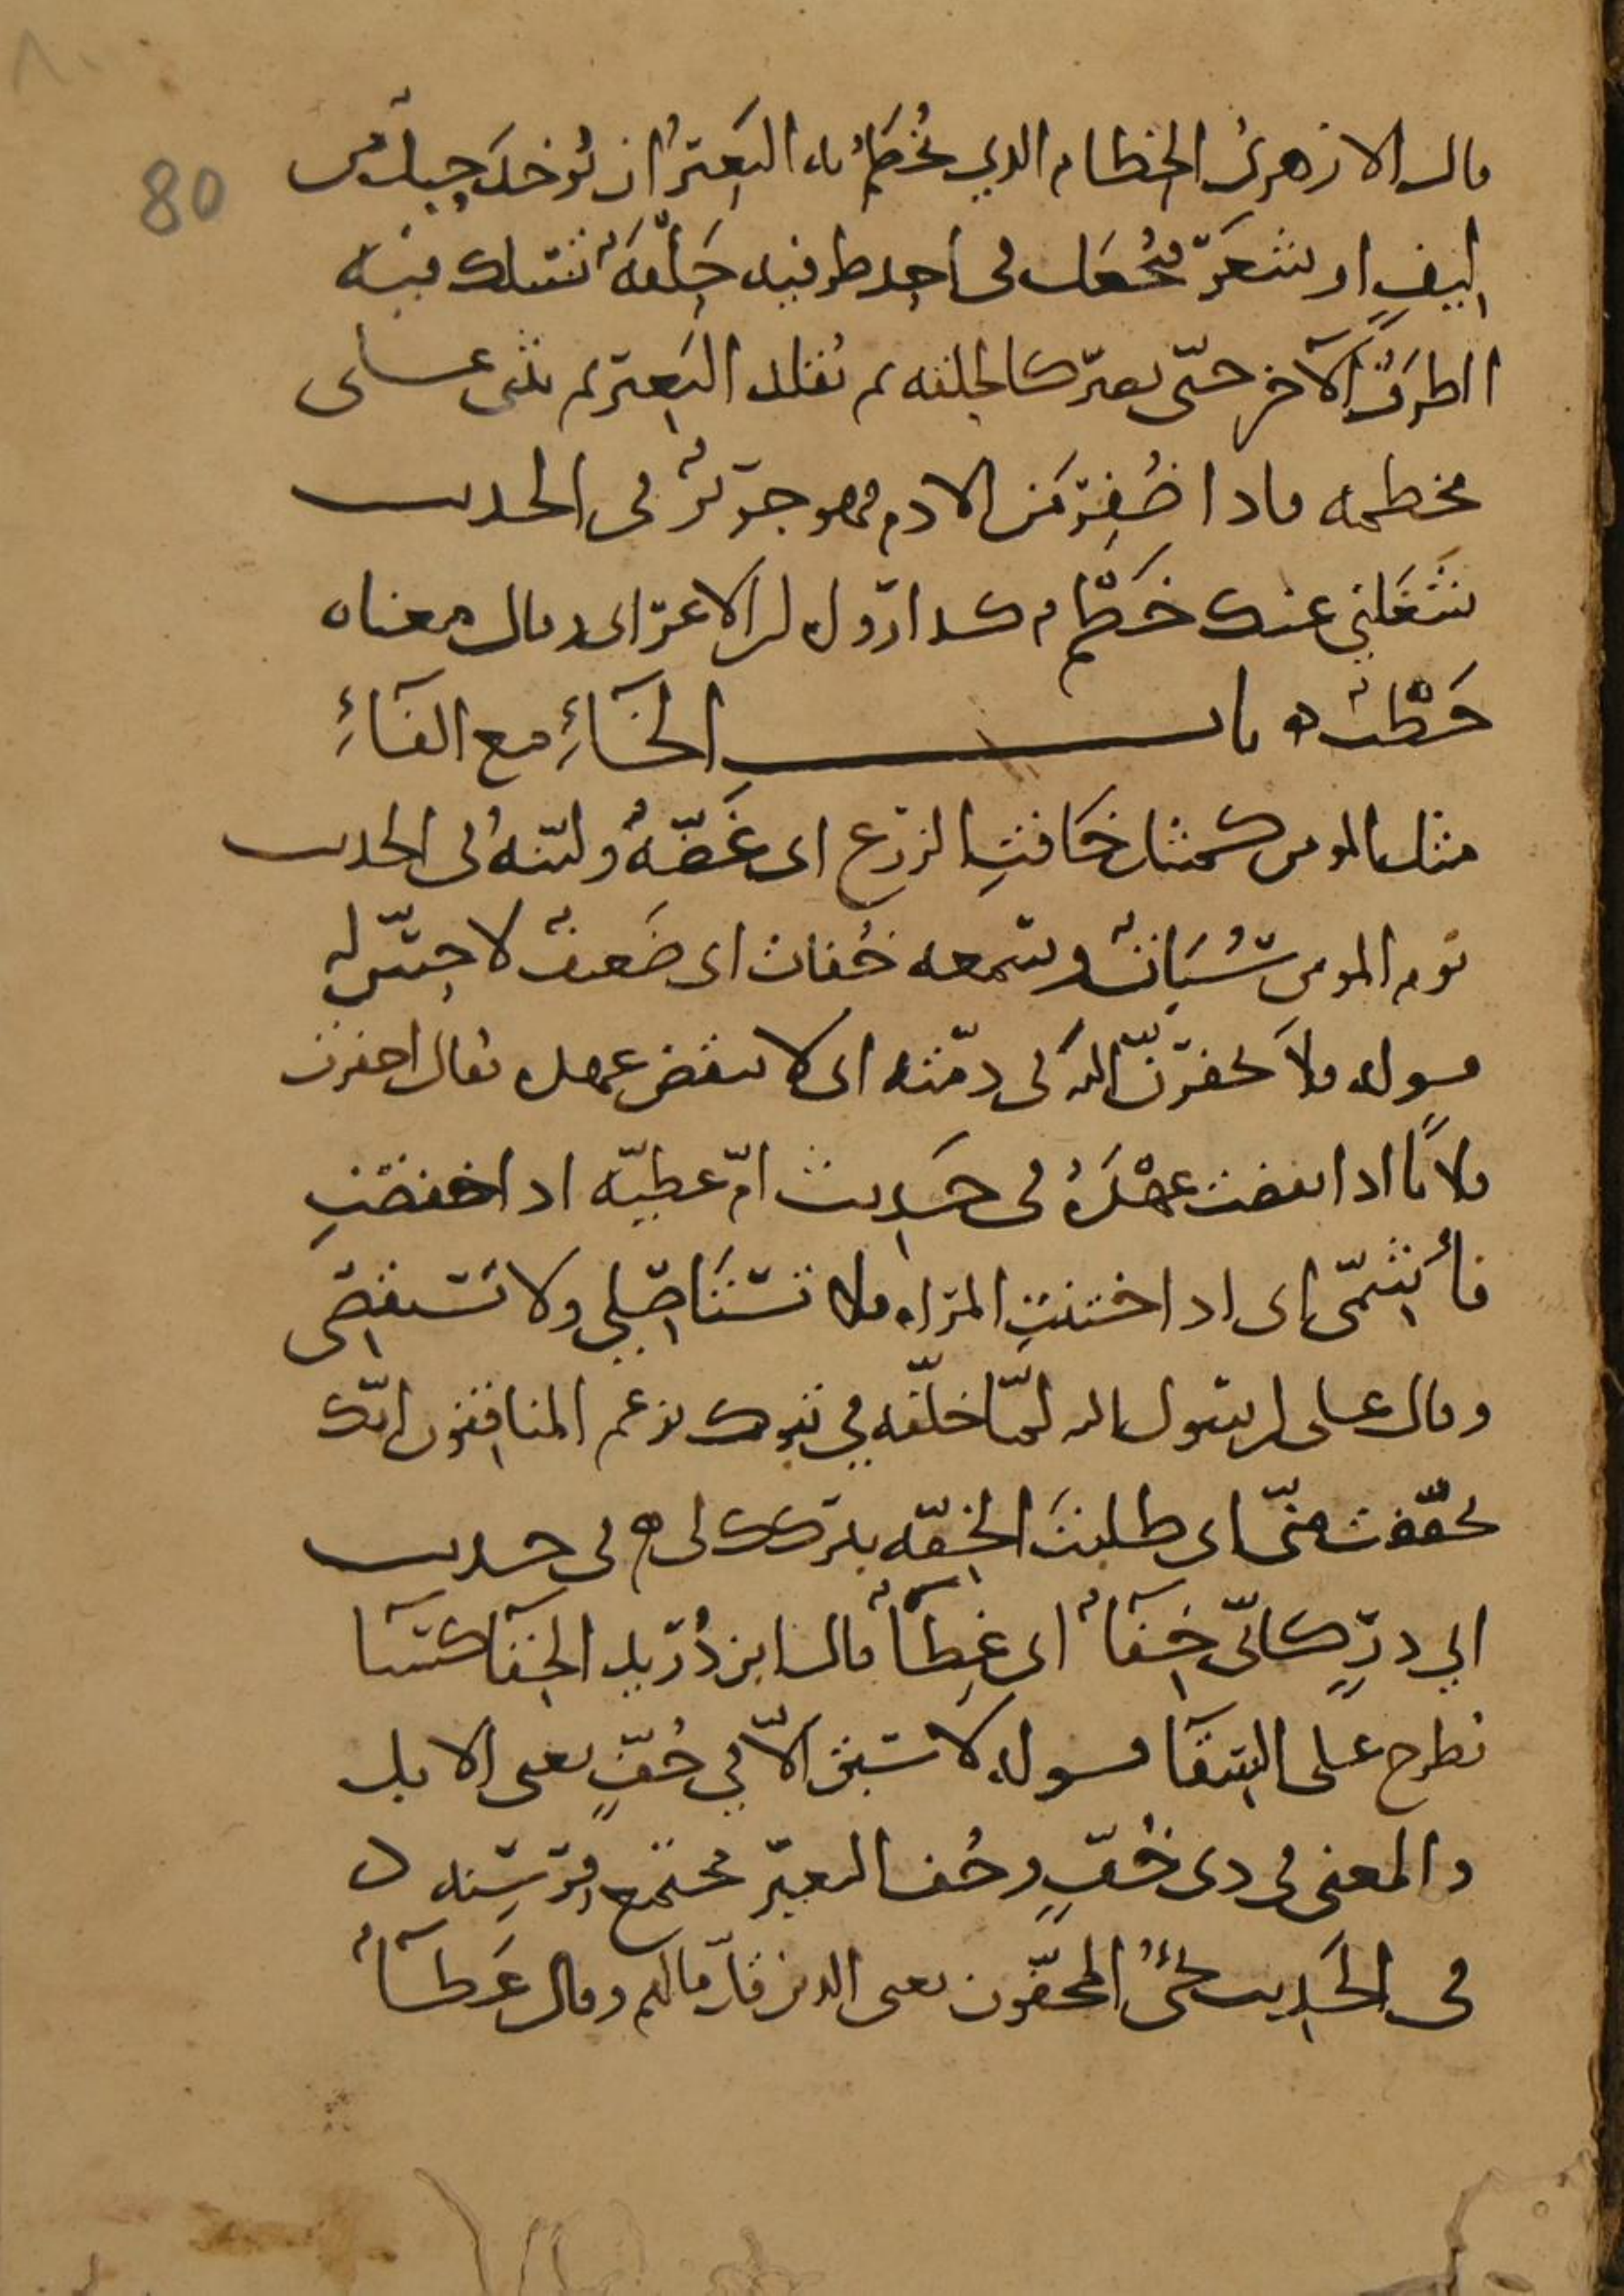 ٨٠
80
قال الازهرىُ الخطام الدي يُخطَم به البَعيرُ ان يُوخدَ حبل من
ليفٍ او شعَر فيُجعَل فى احد طرفيه حَلْقَةٌ يُسلك فيه
الطرَفُ الآخر حتّى يصير كالحلقه ثم يُقلد البَعير ثم يثنى على
مخطمه فادا ضُفِرَ من الادم فهو جرير فى الحديث
شَغَلني عنك خَطْمٌ كدا رواه ابن الاعرابى وقال معناه
خَطْبٌ ه باب الخَآءِ مع الفَآءِ
مثل المومن كمثل خَافتِ الزرع اى غَضّهُ وليّنهُ فى الحديث
نوم المومن سُبَاتٌ وسمعه خُفات اى ضَعيفٌ لا حسّ له
قوله فلا تخفرنّ اللهَ فى دمّته اى لا تنقض عهده يقال اخفرت
فلانًا ادا نقضت عهْدَهُ فى حَديث امّ عطيّه ادا خفضتِ
فأشمّى اى ادا ختنتِ المراه فلا تستَاصلي ولا تستقصى
وقال على لرسول الله لمّا خلّفه في تبوك يزعم المنافقون انّك
تخفّفت منّى اى طلبتَ الخفّه بتركك لى ه فى حديث
ابي درٍّ كانّى خِفَآءٌ اى غِطَآءٌ قال ابن دُرَيد الخِفَآ كسَآ
يُطرح على السِقَآ قوله لا سَبَقَ الاّ في خُفٍّ يعنى الابل
والمعنى فى دى خُفٍّ وخُف البعير مجتمع فِرْسِنه ه
فى الحَديث نجى المخفّون يعنى الدين قلّ مالهم وقال عَطآءٌ